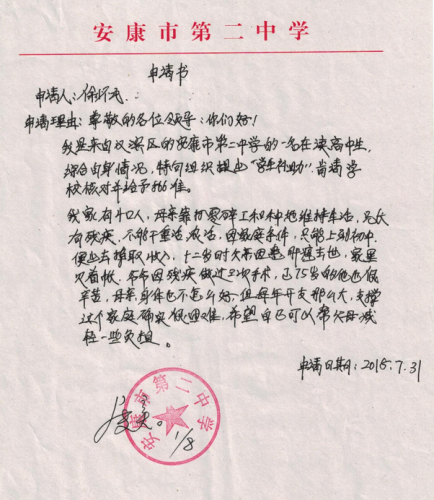 安康市第二中学
申请书
申请人:徐
申请理由:尊敬的各位领导:你们好!
我是来自汉滨区的安康市第二中学的一名在读高中生,
综合自身情况,特向组织提出“学生补助”申请 学
校核对并给予批准。
我家有4口人,母亲靠打零碎工和种地维持生活,兄长
有残疾,不能干重活、农活,因家庭条件,只能上到初中
便出去挣取收入,十二岁时欠
欠着帐。爷爷因残疾做过三次手术,近75岁的他也很
辛苦,母亲身体也不怎么好,但每年开支那么大,支撑
这个家庭确实很困难,希望自己可以帮父母减
轻一些负担。
申请日期:2015.7.31
安康市第二中学
1/8